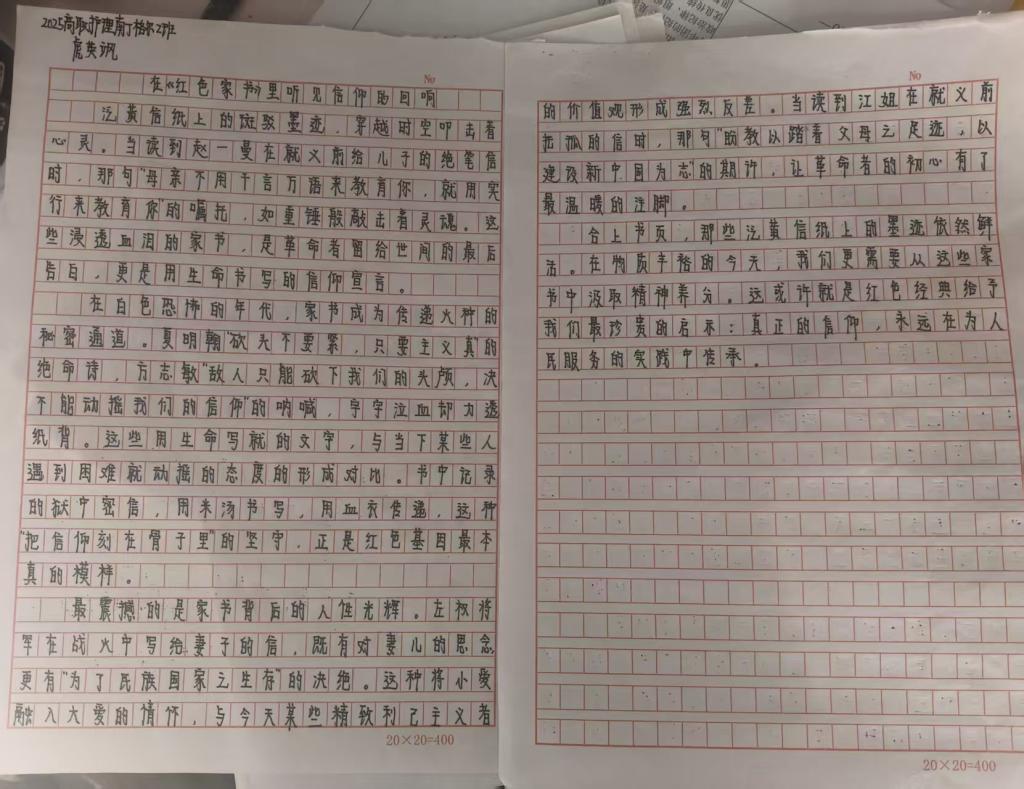 2025高职护理南丁格尔2班
虎英讽
No
在《红色家书》里听见信仰的回响
泛黄信纸上的斑驳墨迹，穿越时空叩击着
心灵。当读到赵一曼在就义前给儿子的绝笔信
时，那句"母亲不用千言万语来教育你，就用实
行来教育你"的嘱托，如重锤般敲击着灵魂。这
些浸透血泪的家书，是革命者留给世间的最后
告白，更是用生命书写的信仰宣言。
在白色恐怖的年代，家书成为传递火种的
秘密通道。夏明翰"砍头不要紧，只要主义真"的
绝命诗，方志敏"敌人只能砍下我们的头颅，决
不能动摇我们的信仰"的呐喊，字字泣血却力透
纸背。这些用生命写就的文字，与当下某些人
遇到困难就动摇的态度的形成对比。书中记录
的狱中密信，用米汤书写，用血衣传递，这种
"把信仰刻在骨子里"的坚守，正是红色基因最本
真的模样。
最震撼的是家书背后的人性光辉。左权将
军在战火中写给妻子的信，既有对妻儿的思念
更有"为了民族国家之生存"的决绝。这种将小爱
融入大爱的情怀，与今天某些精致利己主义者
20×20=400
No
的价值观形成强烈反差。当读到江姐在就义前
托孤的信时，那句"盼教以踏着父母之足迹，以
建设新中国为志"的期许，让革命者的初心有了
最温暖的注脚。
合上书页，那些泛黄信纸上的墨迹依然鲜
活。在物质丰裕的今天，我们更需要从这些家
书中汲取精神养分。这或许就是红色经典给予
我们最珍贵的启示：真正的信仰，永远在为人
民服务的实践中传承。
20×20=400